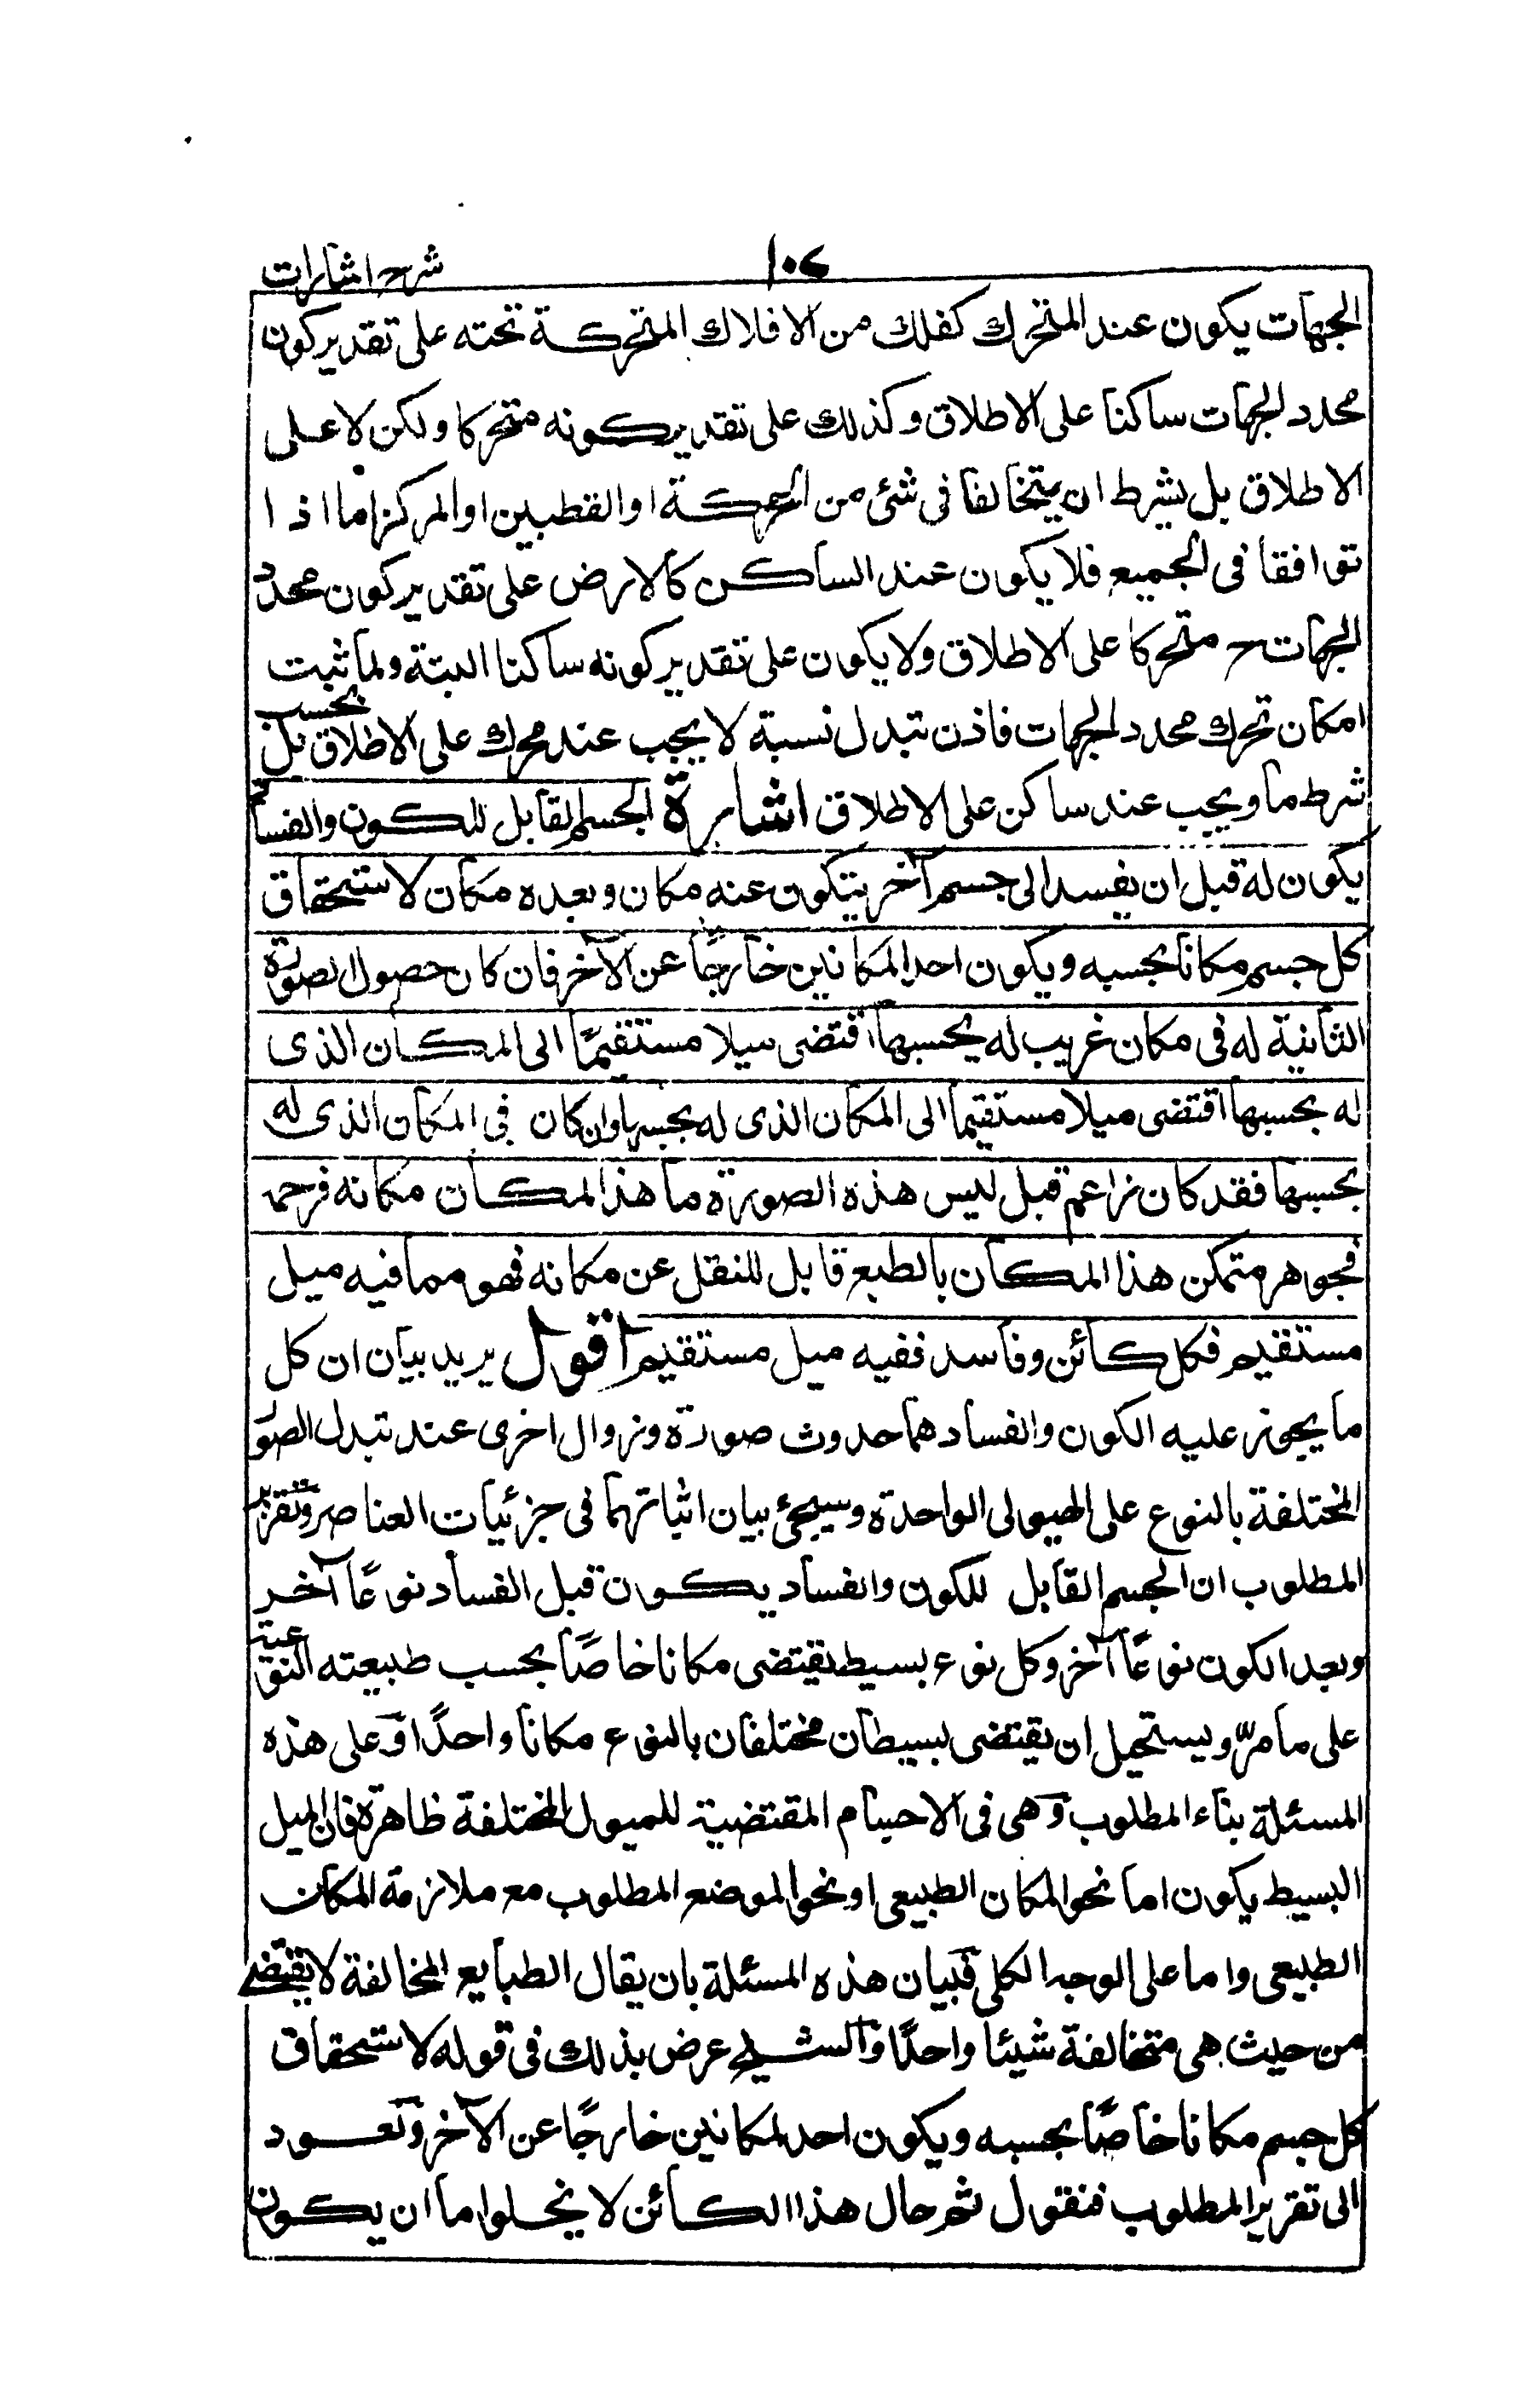 شرح اشارات
الجهات يكون عند المتحرك كفلك من الافلاك المتحركة تحته على تقدير كون
محدد الجهات ساكنا على الاطلاق وكذلك على تقدير كونه متحركا ولكن لا على
الاطلاق بل بشرط ان يتخالفا فى شئ من الحركة او القطبين او المركز اما اذا
توافقا فى الجميع فلا يكون عند الساكن كالارض على تقدير كون محدد
الجهات متحركا على الاطلاق ولا يكون على تقدير كونه ساكنا البتة ولما ثبت
امكان تحرك محدد الجهات فاذن تبدل نسبة لا يجب عند محرك على الاطلاق بل بحسب
شرط ما ويجب عند ساكن على الاطلاق اشارة الجسم القابل للكون والفساد
يكون له قبل ان يفسد الى جسم آخر يتكون عنه مكان وبعده مكان لاستحقاق
كل جسم مكانا بحسبه ويكون احد المكانين خارجًا عن الآخر فان كان حصول الصورة
الثانية له فى مكان غريب له بحسبها اقتضى ميلا مستقيمًا الى المكان الذى
له بحسبها اقتضى ميلا مستقيما الى المكان الذى له بحسبها وان كان فى المكان الذى له
بحسبها فقد كان زاعم قبل لبس هذه الصورة ما هذا المكان مكانه فزحمه
فجوهر متمكن هذا المكان بالطبع قابل للنقل عن مكانه فهو مما فيه ميل
مستقيم فكل كائن وفاسد ففيه ميل مستقيم اقول يريد بيان ان كل
ما يجوز عليه الكون والفساد هما حدوث صورة وزوال اخرى عند تبدل الصور
المختلفة بالنوع على الهيولى الواحدة وسيجئ بيان اثباتهما فى جزئيات العناصر وتقرير
المطلوب ان الجسم القابل للكون والفساد يكون قبل الفساد نوعًا آخر
وبعد الكون نوعًا آخر وكل نوع بسيط يقتضى مكانا خاصًا بحسب طبيعته النوعية
على ما مرّ ويستحيل ان يقتضى بسيطان مختلفان بالنوع مكانا واحدًا وعلى هذه
المسئلة بناء المطلوب وهى فى الاجسام المقتضية للميول المختلفة ظاهرة فان الميل
البسيط يكون اما نحو المكان الطبيعى او نحو الموضع المطلوب مع ملازمة المكان
الطبيعى واما على الوجه الكلى فبيان هذه المسئلة بان يقال الطبايع المخالفة لا يقتضى
من حيث هى متخالفة شيئا واحدًا والشيخ عرض بذلك فى قوله لاستحقاق
كل جسم مكانا خاصًا بحسبه ويكون احد المكانين خارجًا عن الآخر ونعود
الى تقرير المطلوب فنقول ثم حال هذا الكائن لا يخلوا ما ان يكون